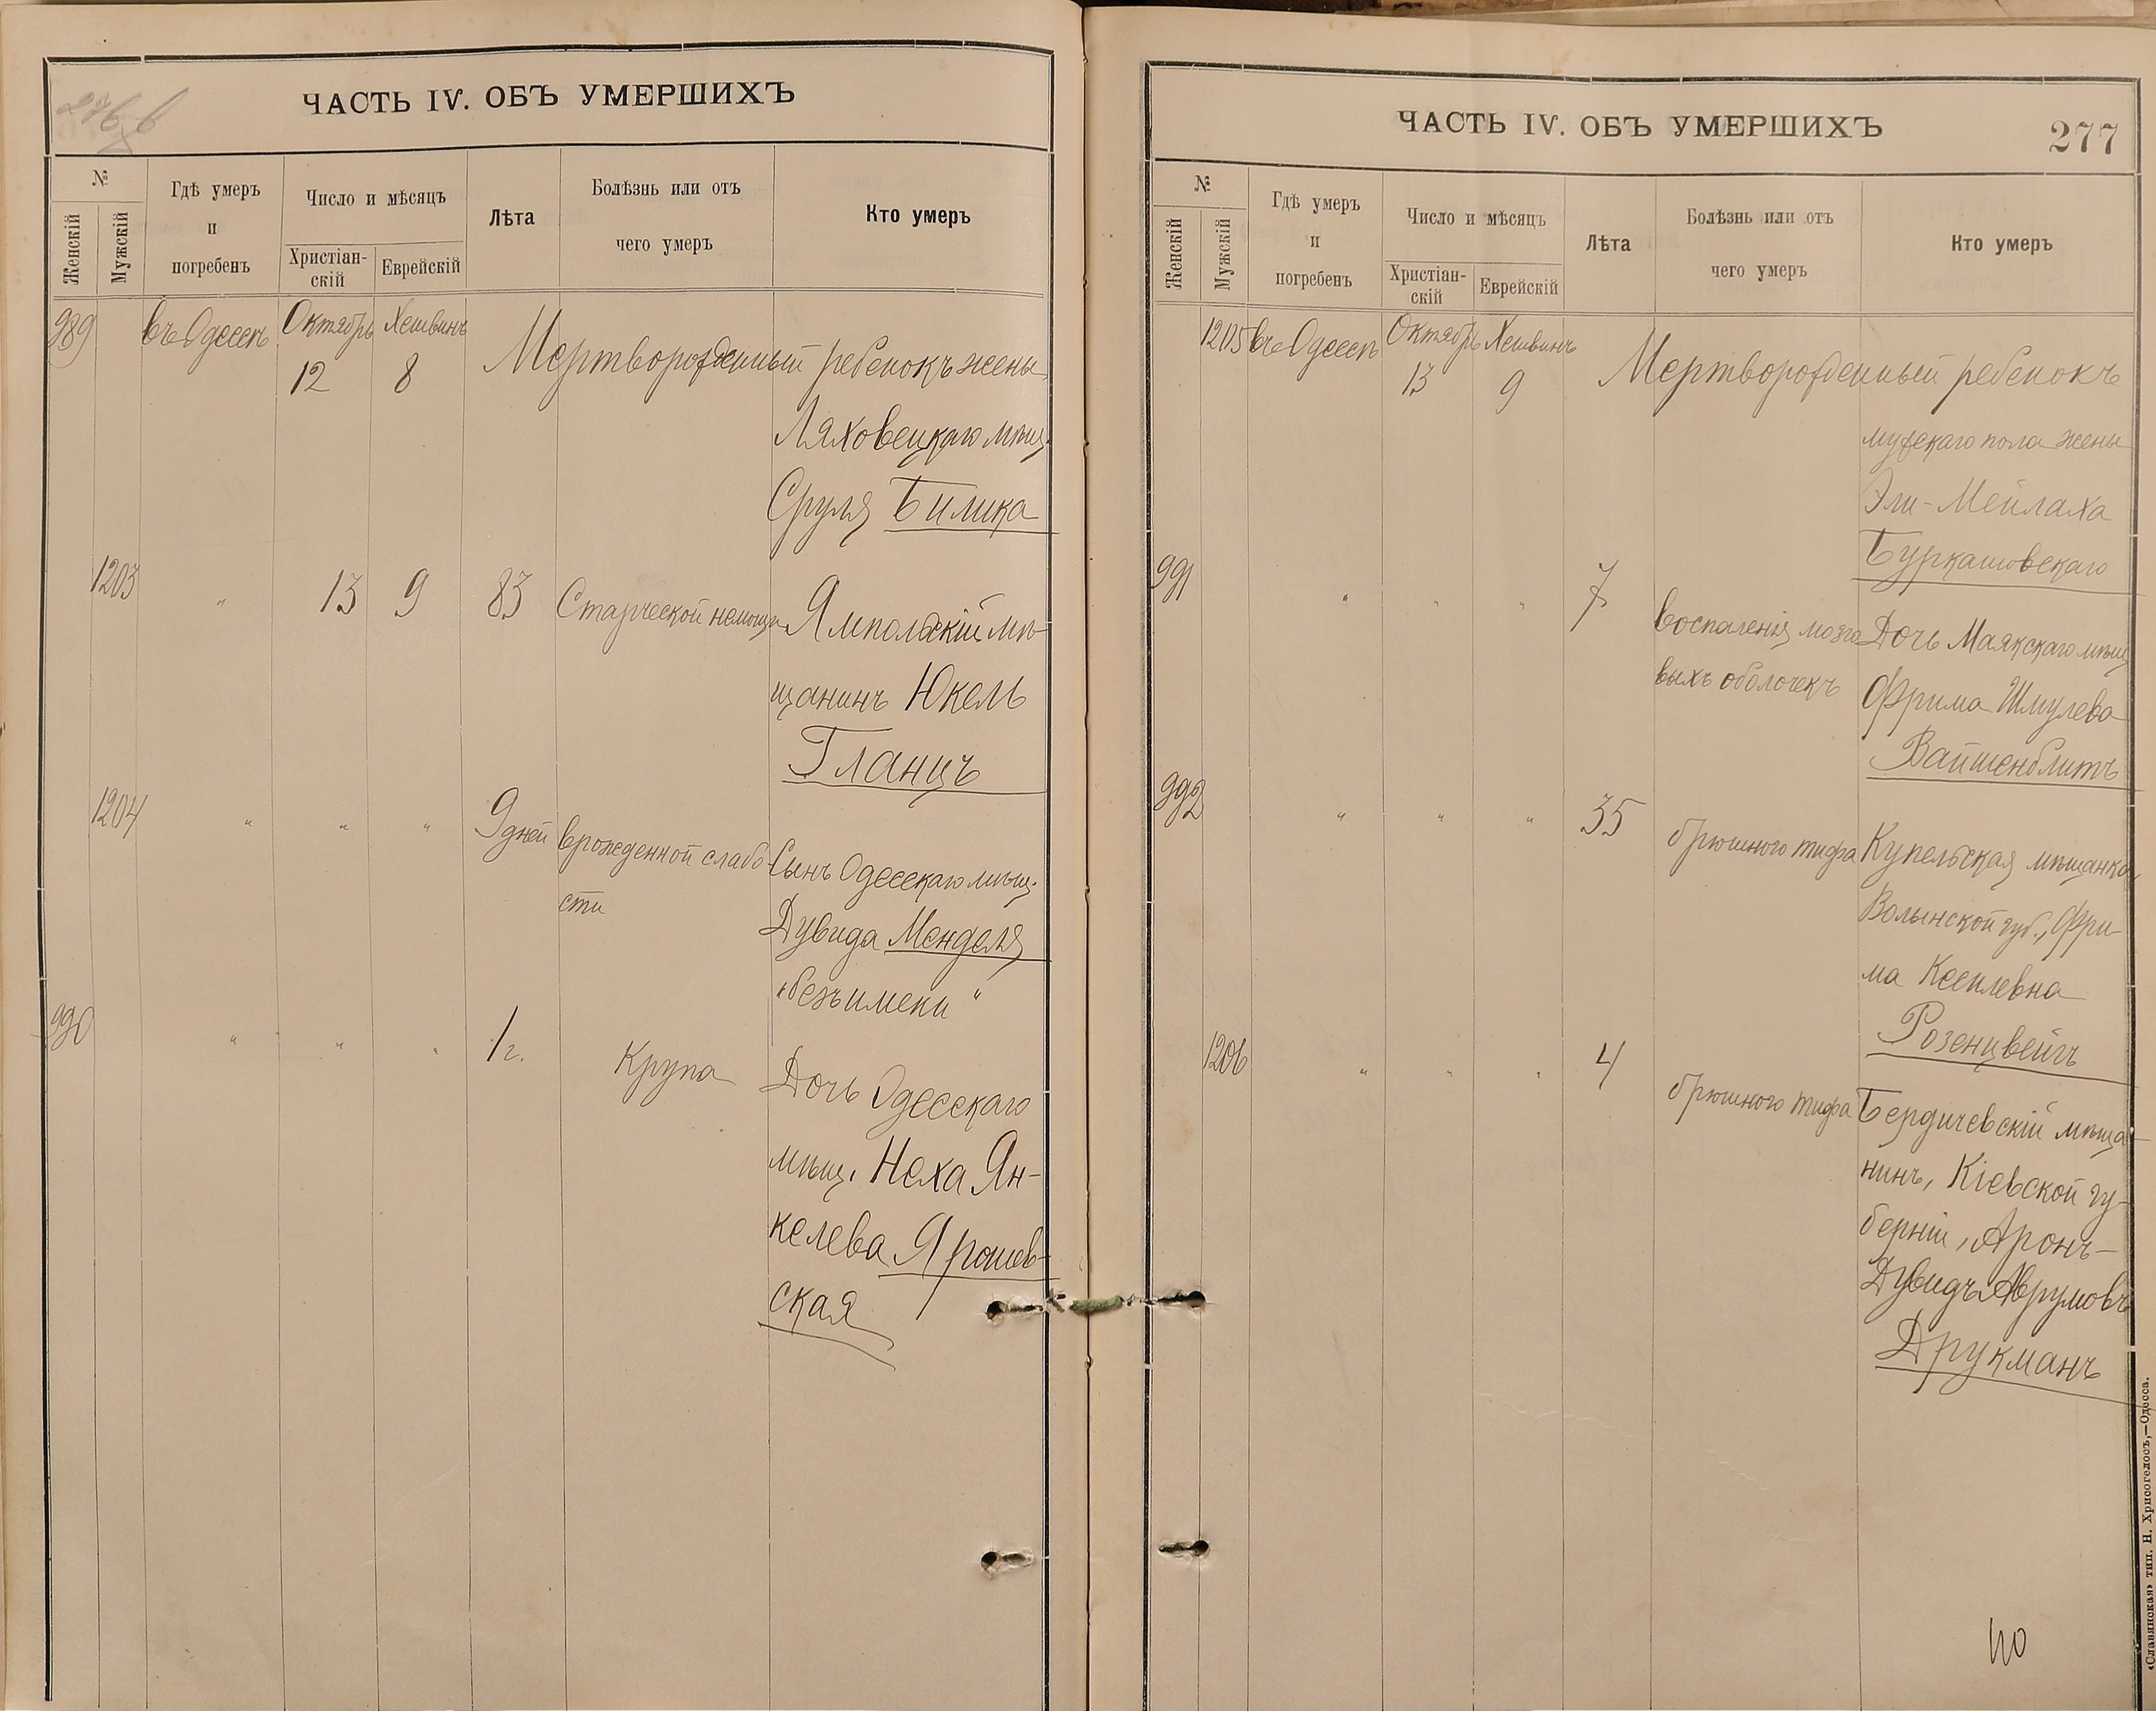 ЧАСТЬ IV. ОБЪ УМЕРШИХЪ
№
Женскій
Мужскій
Гдѣ умеръ
и
погребенъ
Число и мѣсяцъ
Христіан-
скій
Еврейскій
Лѣта
Болѣзнь или отъ
чего умеръ
Кто умеръ
989 въ Одессѣ Октябрь Хешвинъ
12 8 Мертворожденный ребенокъ жены
Ляховецкаго мѣщ.
Сруля Билика
1203 " 13 9 83 Старческой немощи Ямпольскій мѣ-
щанинъ Юкель
Гланцъ
1204 " " " 9 дней врожденной слабо- Сынъ Одесскаго мѣщ.
сти Дувида Менделя
"безъимени"
990 " " " 1 г. Крупа Дочь Одесскаго
мѣщ. Неха Ян-
келева Ярошев-
ская
ЧАСТЬ IV. ОБЪ УМЕРШИХЪ
277
№
Женскій
Мужскій
Гдѣ умеръ
и
погребенъ
Число и мѣсяцъ
Христіан-
скій
Еврейскій
Лѣта
Болѣзнь или отъ
чего умеръ
Кто умеръ
1205 въ Одессѣ Октябрь Хешвинъ
13 9 Мертворожденный ребенокъ
мужскаго пола жены
Эли-Мейлаха
Буркашовскаго
991 " " " 7 воспаленія мозго- Дочь Маякскаго мѣщ
выхъ оболочекъ Фрима Шмулева
Вайшенблитъ
992 " " " 35 брюшного тифа Купельская мѣщанка
Волынской губ., Фри-
ма Ксеплевна
Розенцвейгъ
1206 " " " 4 брюшного тифа Бердичевскій мѣща-
нинъ, Кіевской гу-
берніи, Аронъ-
Дувидъ Аврумовъ
Друкманъ
«Славянская» тип. Н. Хрисогелосъ,—Одесса.